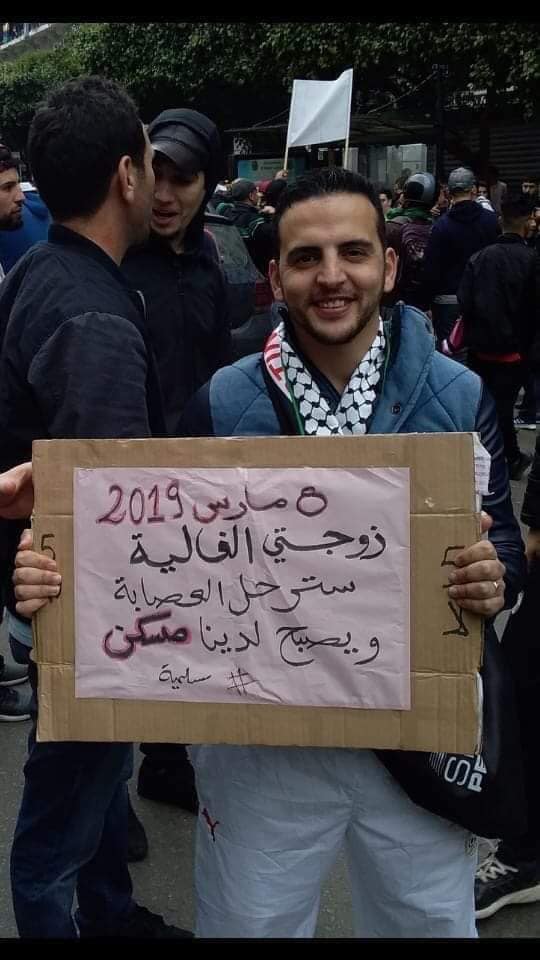 8 مارس 2019
زوجتي الغالية
سترحل العصابة
ويصبح لدينا مسكن
# سلمية
5
لا